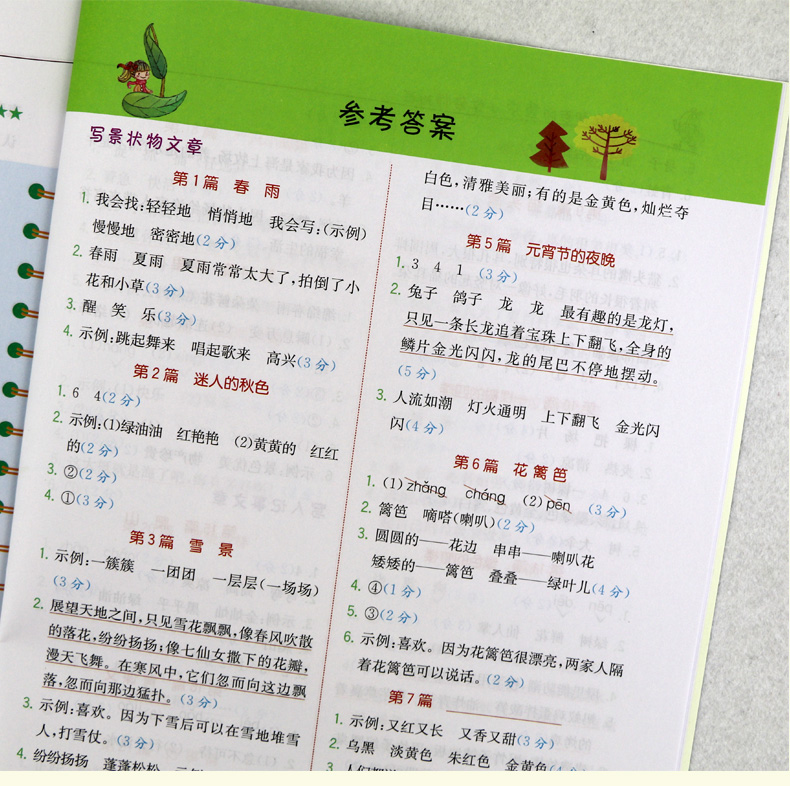 参考答案
写景状物文章
第1篇 春 雨
1. 我会找:轻轻地 悄悄地 我会写:(示例)
慢慢地 密密地(2分)
2. 春雨 夏雨 夏雨常常太大了,拍倒了小
花和小草(3分)
3. 醒 笑 乐(3分)
4. 示例:跳起舞来 唱起歌来 高兴(3分)
第2篇 迷人的秋色
1. 6 4(2分)
2. 示例:(1)绿油油 红艳艳 (2)黄黄的 红红
的(2分)
3. ②(2分)
4. ①(3分)
第3篇 雪 景
1. 示例:一簇簇 一团团 一层层(一场场)
(3分)
2. 展望天地之间,只见雪花飘飘,像春风吹散
的落花,纷纷扬扬;像七仙女撒下的花瓣,
漫天飞舞。在寒风中,它们忽而向这边飘
落,忽而向那边猛扑。(3分)
3. 示例:喜欢。因为下雪后可以在雪地堆雪
人,打雪仗。(3分)
4. 纷纷扬扬 蓬蓬松松
白色,清雅美丽;有的是金黄色,灿烂夺
目……(2分)
第5篇 元宵节的夜晚
1. 3 4 1 (3分)
2. 兔子 鸽子 龙 龙 最有趣的是龙灯,
只见一条长龙追着宝珠上下翻飞,全身的
鳞片金光闪闪,龙的尾巴不停地摆动。
(5分)
3. 人流如潮 灯火通明 上下翻飞 金光闪
闪(4分)
第6篇 花篱笆
1. (1)zhǎng cháng (2)pēn (3分)
2. 篱笆 嘀嗒(喇叭)(2分)
3. 圆圆的——花边 串串——喇叭花
矮矮的——篱笆 叠叠——绿叶儿(4分)
4. ④(1分)
5. ③(2分)
6. 示例:喜欢。因为花篱笆很漂亮,两家人隔
着花篱笆可以说话。(2分)
第7篇
1. 示例:又红又长 又香又甜(3分)
2. 乌黑 淡黄色 朱红色 金黄色(4分)